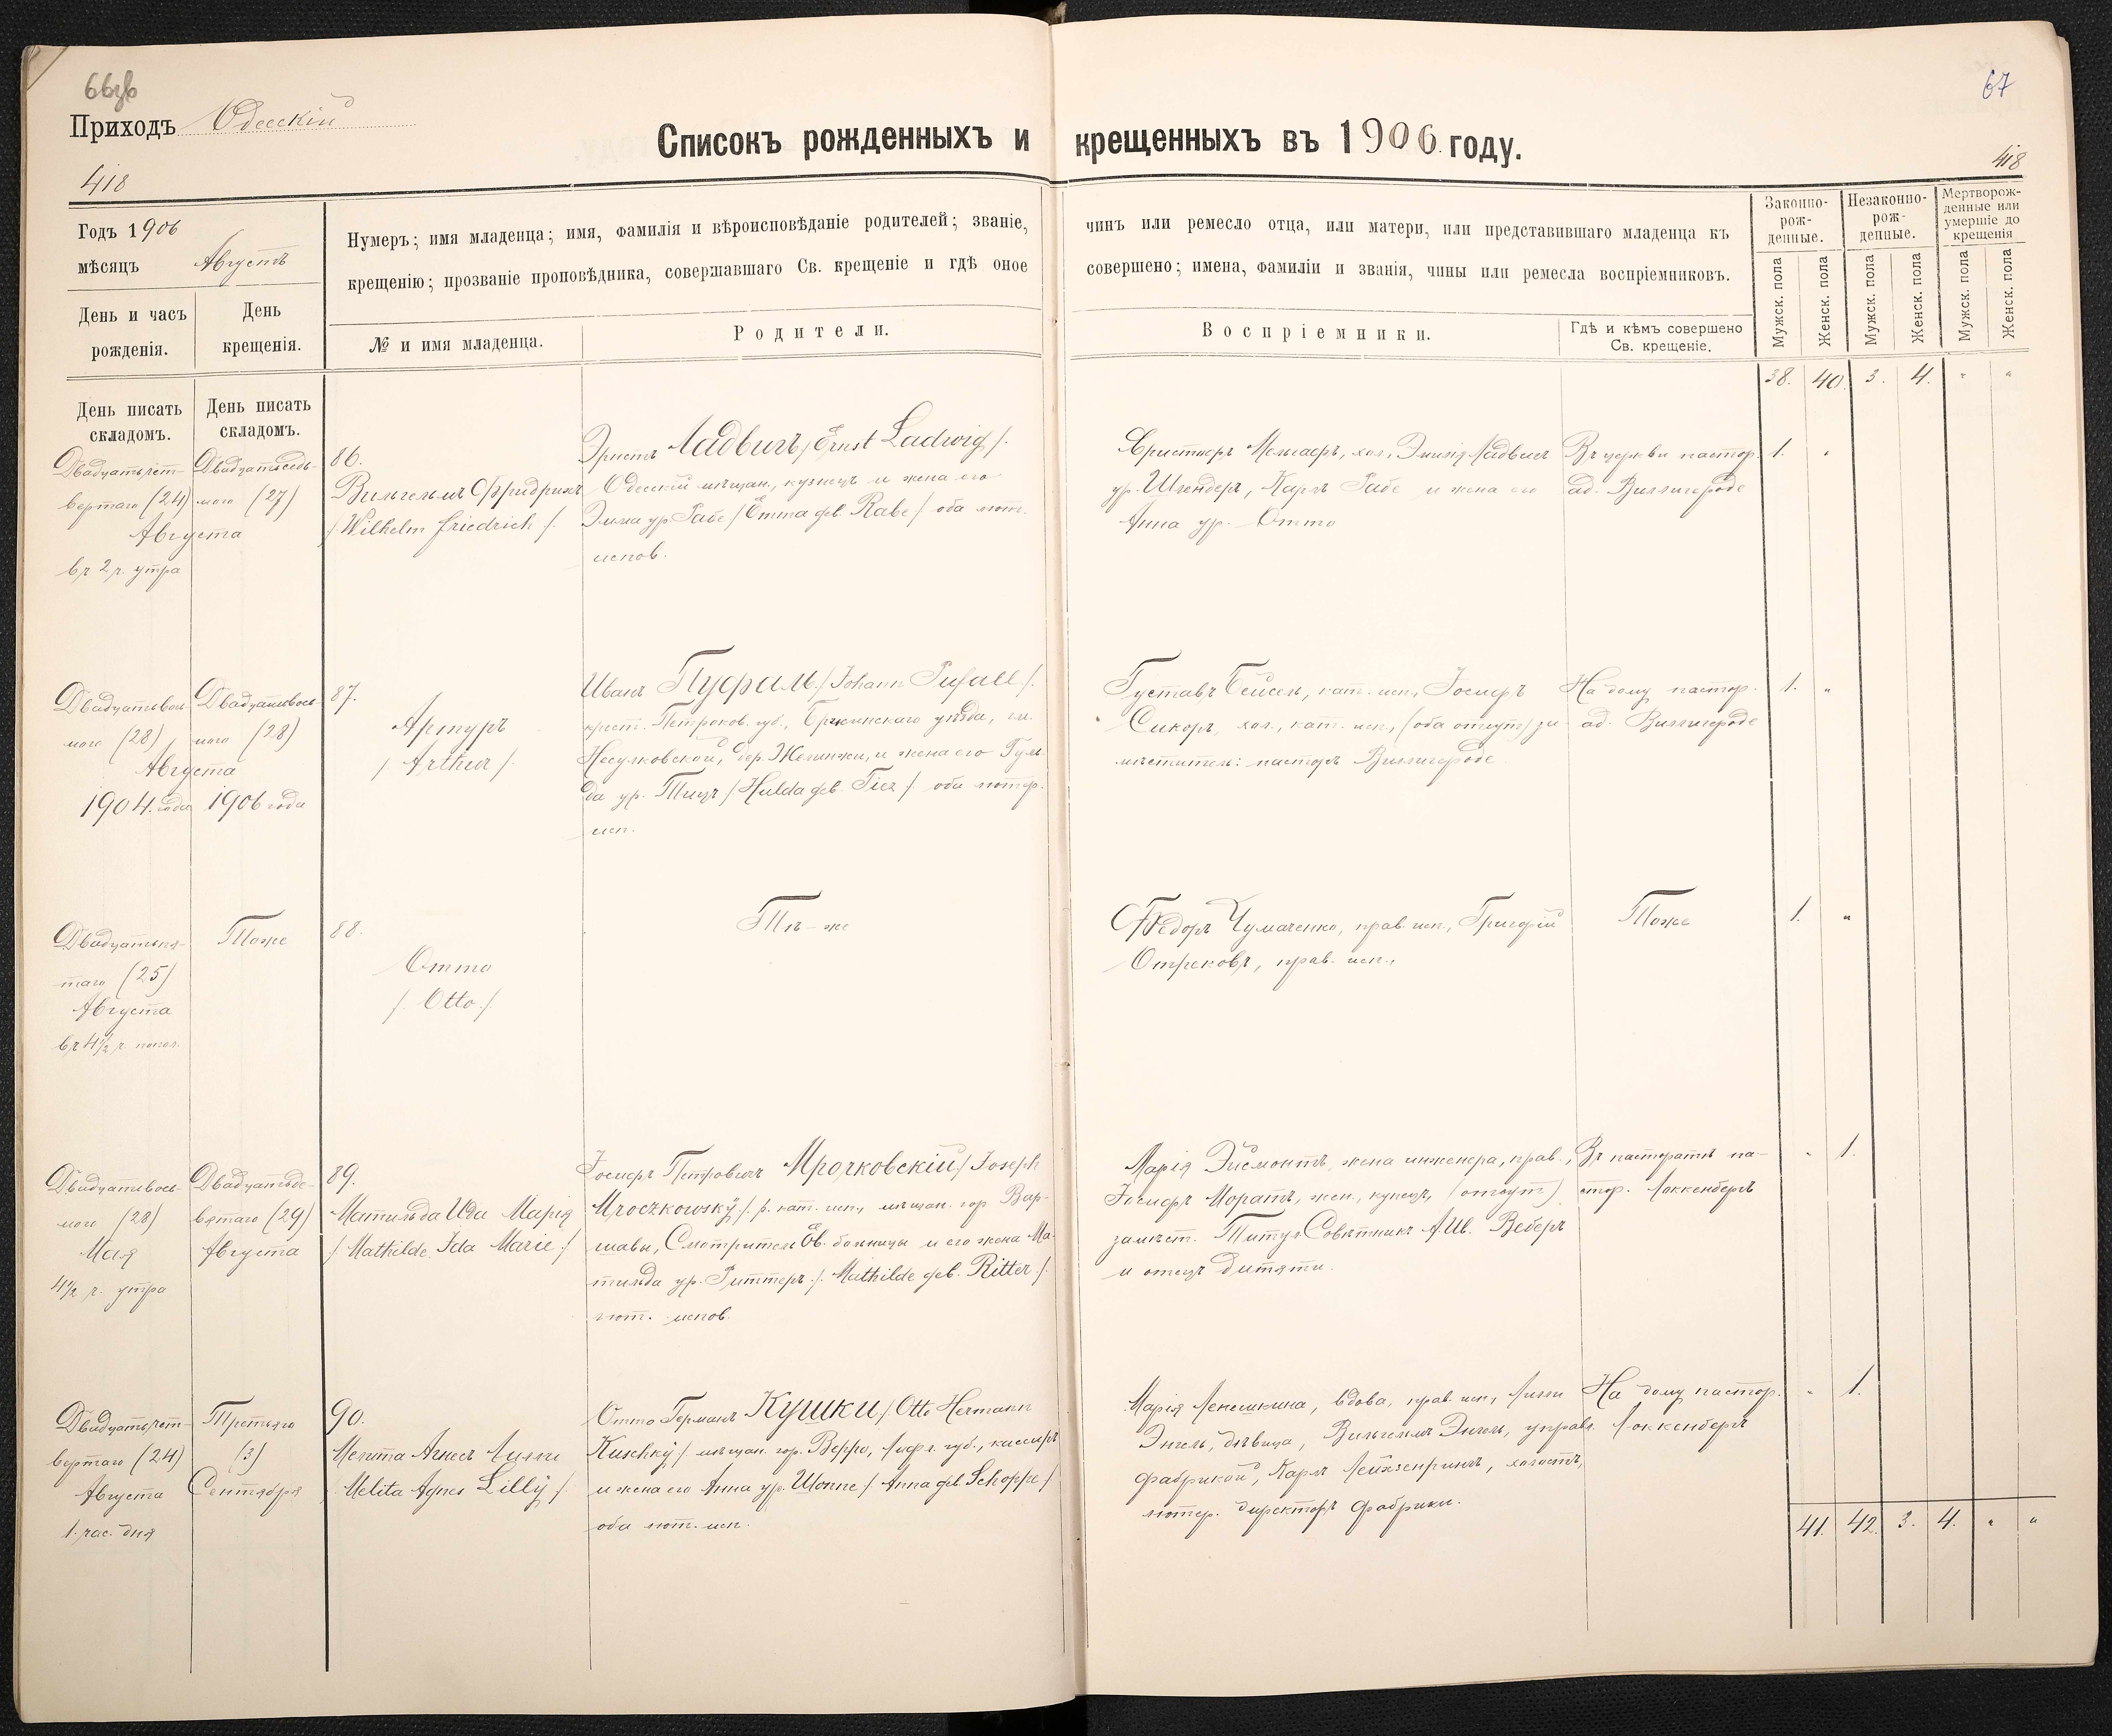 66зв
67
Приходъ Одесскій
Списокъ рожденныхъ и крещенныхъ въ 1906 году.
418
418
Годъ 1906
мѣсяцъ Августъ
День и часъ рожденія.
День крещенія.
Нумеръ; имя младенца; имя, фамилія и вѣроисповѣданіе родителей; званіе, чинъ или ремесло отца, или матери, или представившаго младенца къ
крещенію; прозваніе проповѣдника, совершавшаго Св. крещеніе и гдѣ оное совершено; имена, фамиліи и званія, чины или ремесла воспріемниковъ.
№ и имя младенца.
Родители.
Воспріемники.
Гдѣ и кѣмъ совершено
Св. крещеніе.
Законно-
рож-
денные.
Незаконно-
рож-
денные.
Мертворож-
денные или
умершіе до
крещенія
Мужск. пола
Женск. пола
Мужск. пола
Женск. пола
Мужск. пола
Женск. пола
38. 40. 3. 4. " "
День писать
складомъ.
День писать
складомъ.
Двадцатьчет-
вертаго (24)
Августа
въ 2 ч. утра
Двадцатьседь-
мого (27)
86.
Вильгельмъ Фридрихъ
/ Wilhelm Friedrich /.
Эрнстъ Ладвигъ / Ernst Ladwig /.
Одесскій мѣщан., кузнецъ и жена его
Эмма ур. Рабе / Emma geb. Rabe / оба лют.
испов.
хол., Эмилія Ладвигъ
ур. Шлендеръ, Карлъ Рабе и жена его
Анна ур. Отто
Въ церкви пастор.
ад. Виллигероде
1. "
Двадцатьвось-
мого (28)
Августа
1904. года
Двадцатьвось-
мого (28)
1906 года
87.
Артуръ
/ Arthur /.
Иванъ Пуфаль / Johann Pufall /.
крест. Петроков. губ., Брезинскаго уѣзда, гм.
дер. и жена его Гуль-
да ур. Тицъ / Hulda geb. Tiez / оба лютер.
исп.
Густавъ Бейсель, кат. исп., Іосифъ
Сикоръ, хол., кат. исп., (оба отсут) за-
мѣститель: пасторъ Виллигероде
На дому пастор.
ад. Виллигероде
1. "
Двадцатьпя-
таго (25)
Августа
въ 4½ ч. попол.
Тоже
88.
Отто
/. Otto /.
Тѣ-же
Ѳедоръ Чумаченко, прав. исп., Григорій
прав. исп.,
Тоже
1. "
Двадцативось-
мого (28)
Мая
4½ ч. утра
Двадцатьде-
вятаго (29)
Августа
89.
Матильда Ида Марія
/ Mathilde Ida Marie /
Іосифъ Петровичъ Мрочковскій / Joseph
Mroczkowskÿ /. р. кат. исп., мѣщан. гор. Вар-
шавы, Смотритель Ев. больницы и его жена Ма-
тильда ур. Риттеръ /. Mathilde geb. Ritter /.
лют. испов.
Марія Эйсмонтъ, жена инженера, прав.,
Іосифъ Моратъ, жен., купецъ, (отсут)
замѣст. Титул. Совѣтникъ А. Ив. Веберъ
и отецъ дитяти.
Въ пасторатѣ па-
стор. Локкенбергъ
" 1.
Двадцатьчет-
вертаго (24)
Августа
1. час. дня
Третьяго
(3)
Сентября
90.
Мелита Агнесъ Лилли
Melita Agnes Lillÿ /.
Отто Германъ Кушки / Otto Hermann
Kuschkÿ / мѣщан. гор. Верро, Лифл. губ., кассиръ
и жена его Анна ур. Шоппе / Anna geb. Schoppe /
оба лют. исп.
Марія вдова, прав. исп., Лилли
Энгель, дѣвица, Вильгельмъ Энгель, управл.
фабрикой, Карлъ холостъ,
лютер. директоръ фабрики.
На дому пастор.
Локкенбергъ
" 1.
41. 42. 3. 4. " "